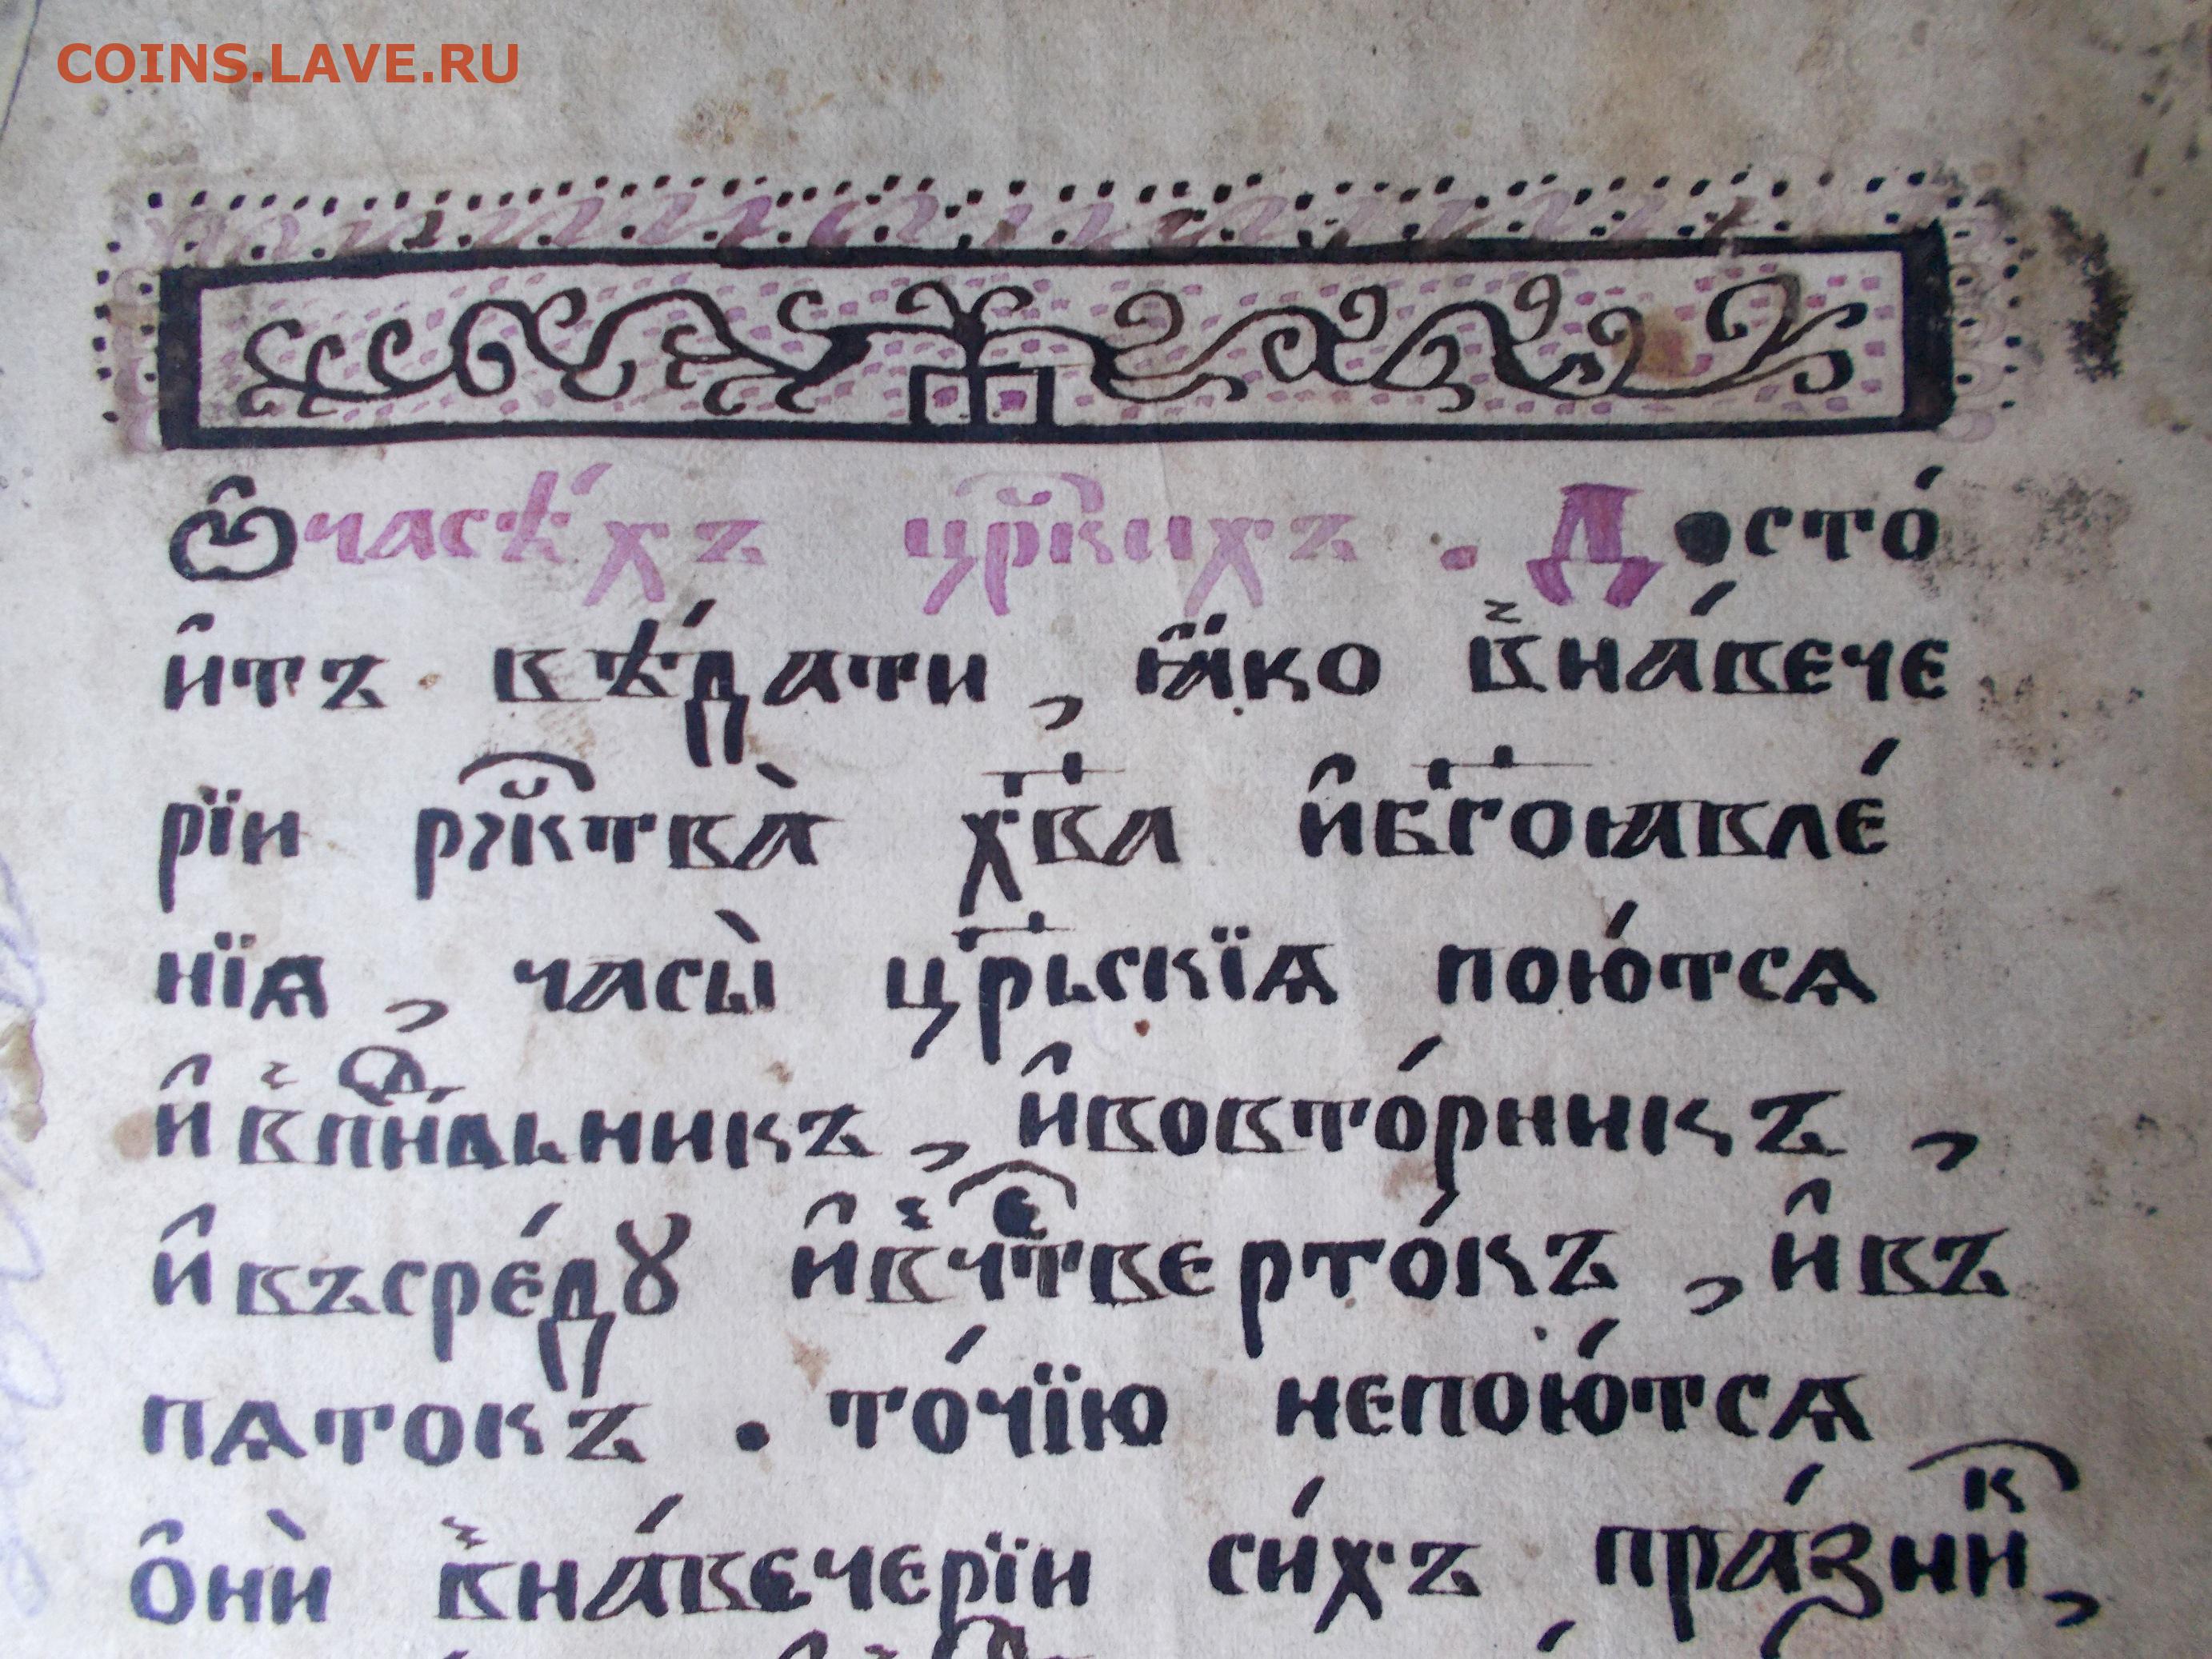 COINS.LAVE.RU
Ѽчасѣ́хъ цр҃кихъ . Досто́
и҆тъ . вѣ́дати , ꙗ҆́ко в̾на́вече
рїи рж҃ктва̀ хв҃а и҆бг҃оꙗвле́
нїѧ , часы̀ цр҃ьскїѧ пою́тсѧ
и҆в̾пнⷣльникъ , и҆вовто́рникъ ,
и҆въсре́дꙋ и҆в̾чтⷷверто́къ , и҆въ
пѧтокъ . то́чїю непою́тсѧ
о҆нѝ в̾на́вечерїи си́хъ пра́зниⷦ ,